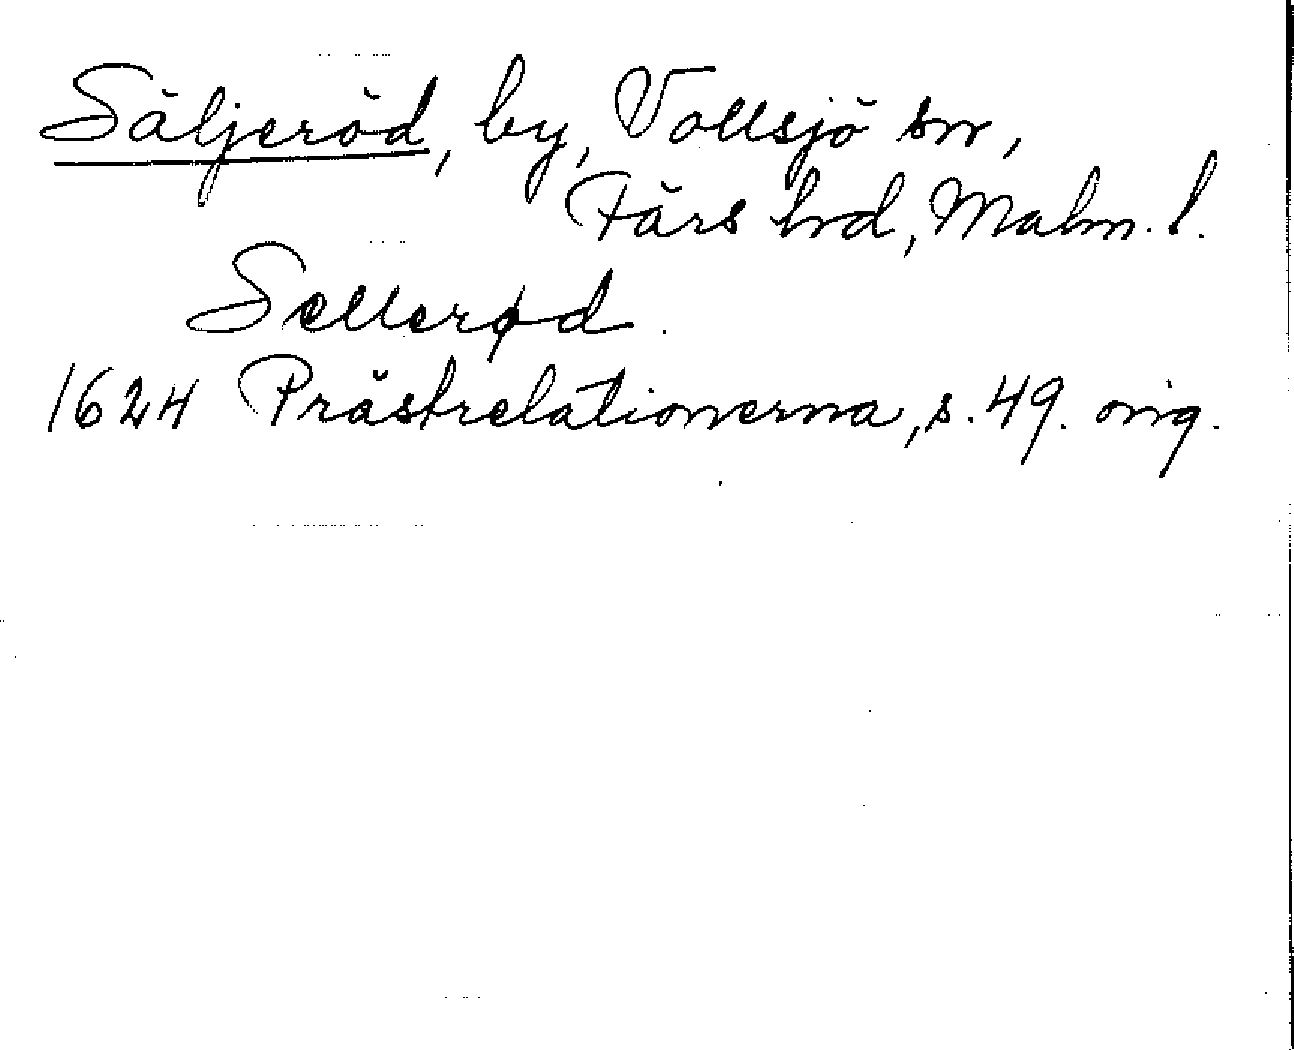 Säljeröd, by, Vollsjö sn,
Färs hrd, Malm. l.
Sellerød.
1624 Prästrelationerna, s. 49. orig.